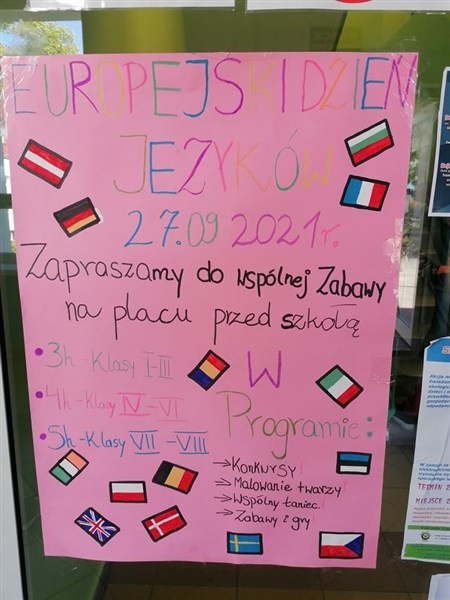 EUROPEJSKI DZIEŃ
JĘZYKÓW
27.09 2021r.
Zapraszamy do wspólnej Zabawy
na placu przed szkołą
• 3h - Klasy I-III
• 4h - Klasy IV-VI
• 5h - Klasy VII-VIII
W
Programie:
→ Konkursy!
→ Malowanie twarzy!
→ Wspólny taniec!
→ Zabawy i gry!
TERMIN
MIEJSCE